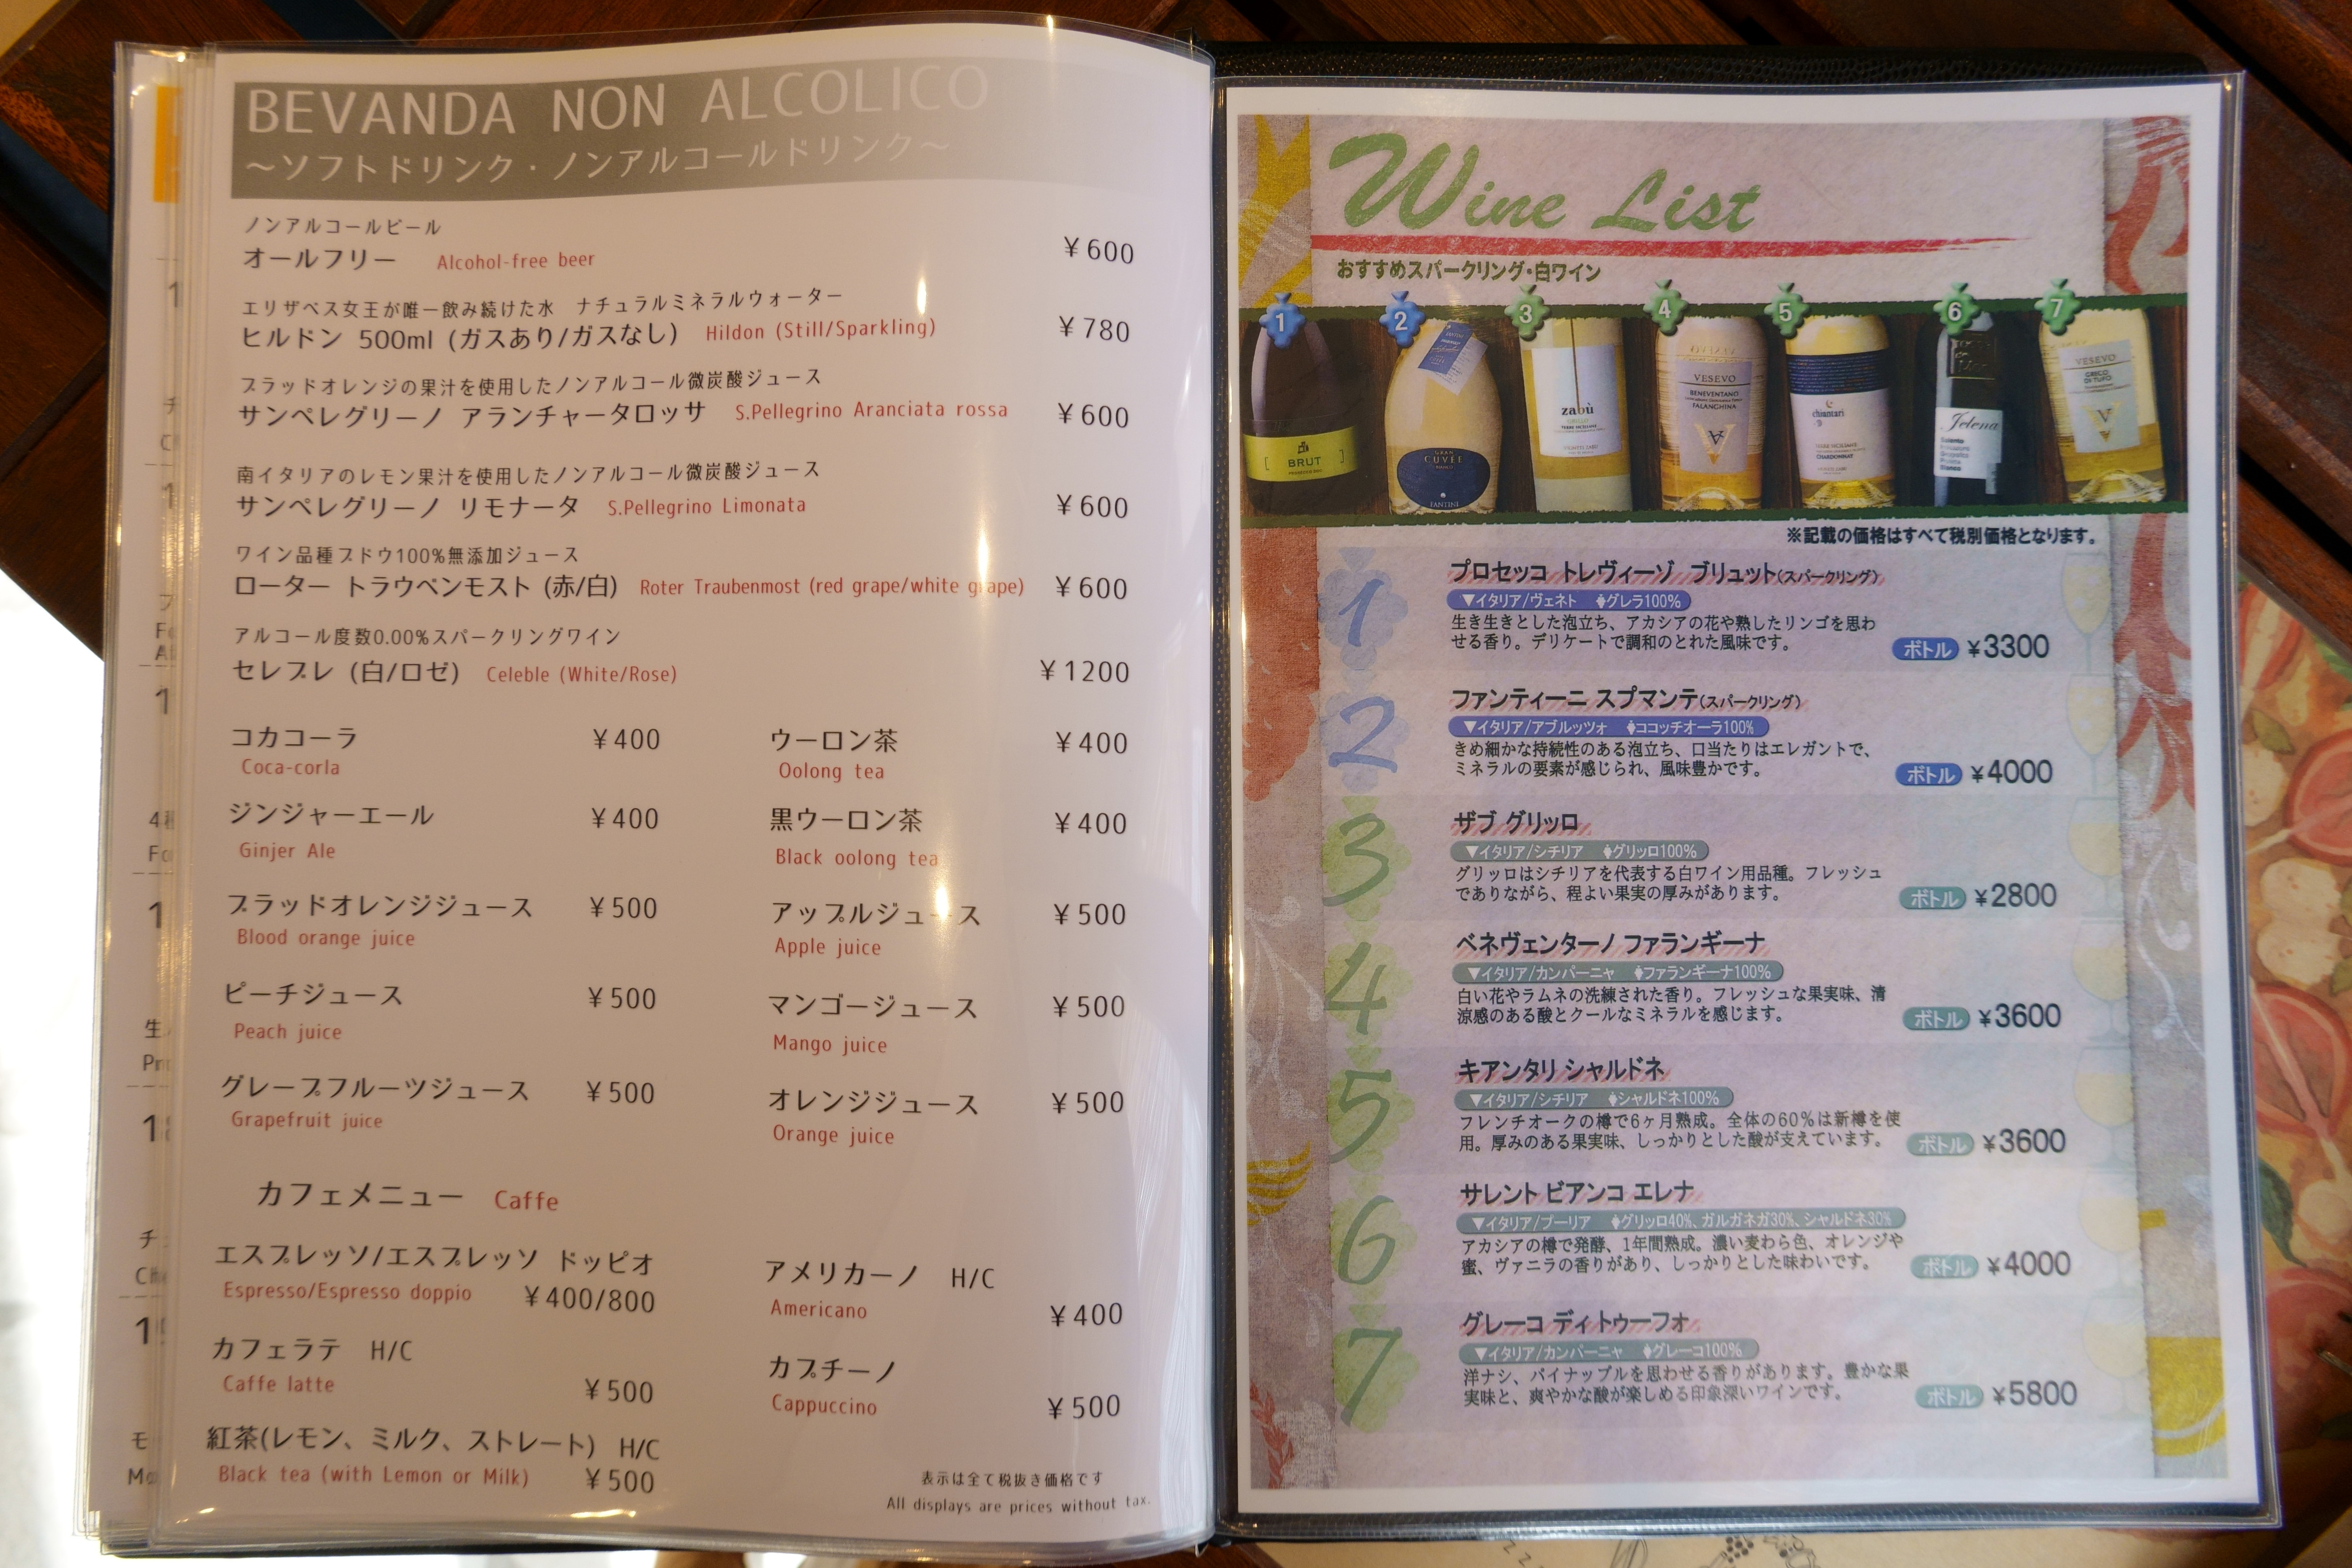 BEVANDA NON ALCOLICO
～ソフトドリンク・ノンアルコールドリンク～
ノンアルコールビール
オールフリー Alcohol-free beer ¥600
エリザベス女王が唯一飲み続けた水 ナチュラルミネラルウォーター
ヒルドン 500ml (ガスあり/ガスなし) Hildon (Still/Sparkling) ¥780
ブラッドオレンジの果汁を使用したノンアルコール微炭酸ジュース
サンペレグリーノ アランチャータロッサ S.Pellegrino Aranciata rossa ¥600
南イタリアのレモン果汁を使用したノンアルコール微炭酸ジュース
サンペレグリーノ リモナータ S.Pellegrino Limonata ¥600
ワイン品種ブドウ100%無添加ジュース
ローター トラウベンモスト (赤/白) Roter Traubenmost (red grape/white grape) ¥600
アルコール度数0.00%スパークリングワイン
セレブレ (白/ロゼ) Celeble (White/Rose) ¥1200
コカコーラ ¥400
Coca-corla
ジンジャーエール ¥400
Ginjer Ale
ブラッドオレンジジュース ¥500
Blood orange juice
ピーチジュース ¥500
Peach juice
グレープフルーツジュース ¥500
Grapefruit juice
ウーロン茶 ¥400
Oolong tea
黒ウーロン茶 ¥400
Black oolong tea
アップルジュース ¥500
Apple juice
マンゴージュース ¥500
Mango juice
オレンジジュース ¥500
Orange juice
カフェメニュー Caffe
エスプレッソ/エスプレッソ ドッピオ
Espresso/Espresso doppio ¥400/800
カフェラテ H/C
Caffe latte ¥500
紅茶(レモン、ミルク、ストレート) H/C
Black tea (with Lemon or Milk) ¥500
アメリカーノ H/C
Americano ¥400
カプチーノ
Cappuccino ¥500
表示は全て税抜き価格です
All displays are prices without tax.
Wine List
おすすめスパークリング・白ワイン
1 2 3 4 5 6 7
BRUT
GRAN
CUVÉE
FANTINI
zabù
VESEVO
BENEVENTANO
FALANGHINA
chiantari
CHARDONNAY
Jelena
Salento
Bianco
VESEVO
GRECO
DI TUFO
※記載の価格はすべて税別価格となります。
1 プロセッコ トレヴィーゾ ブリュット(スパークリング)
▼イタリア/ヴェネト グレラ100%
生き生きとした泡立ち、アカシアの花や熟したリンゴを思わ
せる香り。デリケートで調和のとれた風味です。 ボトル ¥3300
2 ファンティーニ スプマンテ(スパークリング)
▼イタリア/アブルッツォ ココッチオーラ100%
きめ細かな持続性のある泡立ち、口当たりはエレガントで、
ミネラルの要素が感じられ、風味豊かです。 ボトル ¥4000
3 ザブ グリッロ
▼イタリア/シチリア グリッロ100%
グリッロはシチリアを代表する白ワイン用品種。フレッシュ
でありながら、程よい果実の厚みがあります。 ボトル ¥2800
4 ベネヴェンターノ ファランギーナ
▼イタリア/カンパーニャ ファランギーナ100%
白い花やラムネの洗練された香り。フレッシュな果実味、清
涼感のある酸とクールなミネラルを感じます。 ボトル ¥3600
5 キアンタリ シャルドネ
▼イタリア/シチリア シャルドネ100%
フレンチオークの樽で6ヶ月熟成。全体の60%は新樽を使
用。厚みのある果実味、しっかりとした酸が支えています。 ボトル ¥3600
6 サレント ビアンコ エレナ
▼イタリア/プーリア グリッロ40%、ガルガネガ30%、シャルドネ30%
アカシアの樽で発酵、1年間熟成。濃い麦わら色、オレンジや
蜜、ヴァニラの香りがあり、しっかりとした味わいです。 ボトル ¥4000
7 グレーコ ディ トゥーフォ
▼イタリア/カンパーニャ グレーコ100%
洋ナシ、パイナップルを思わせる香りがあります。豊かな果
実味と、爽やかな酸が楽しめる印象深いワインです。 ボトル ¥5800